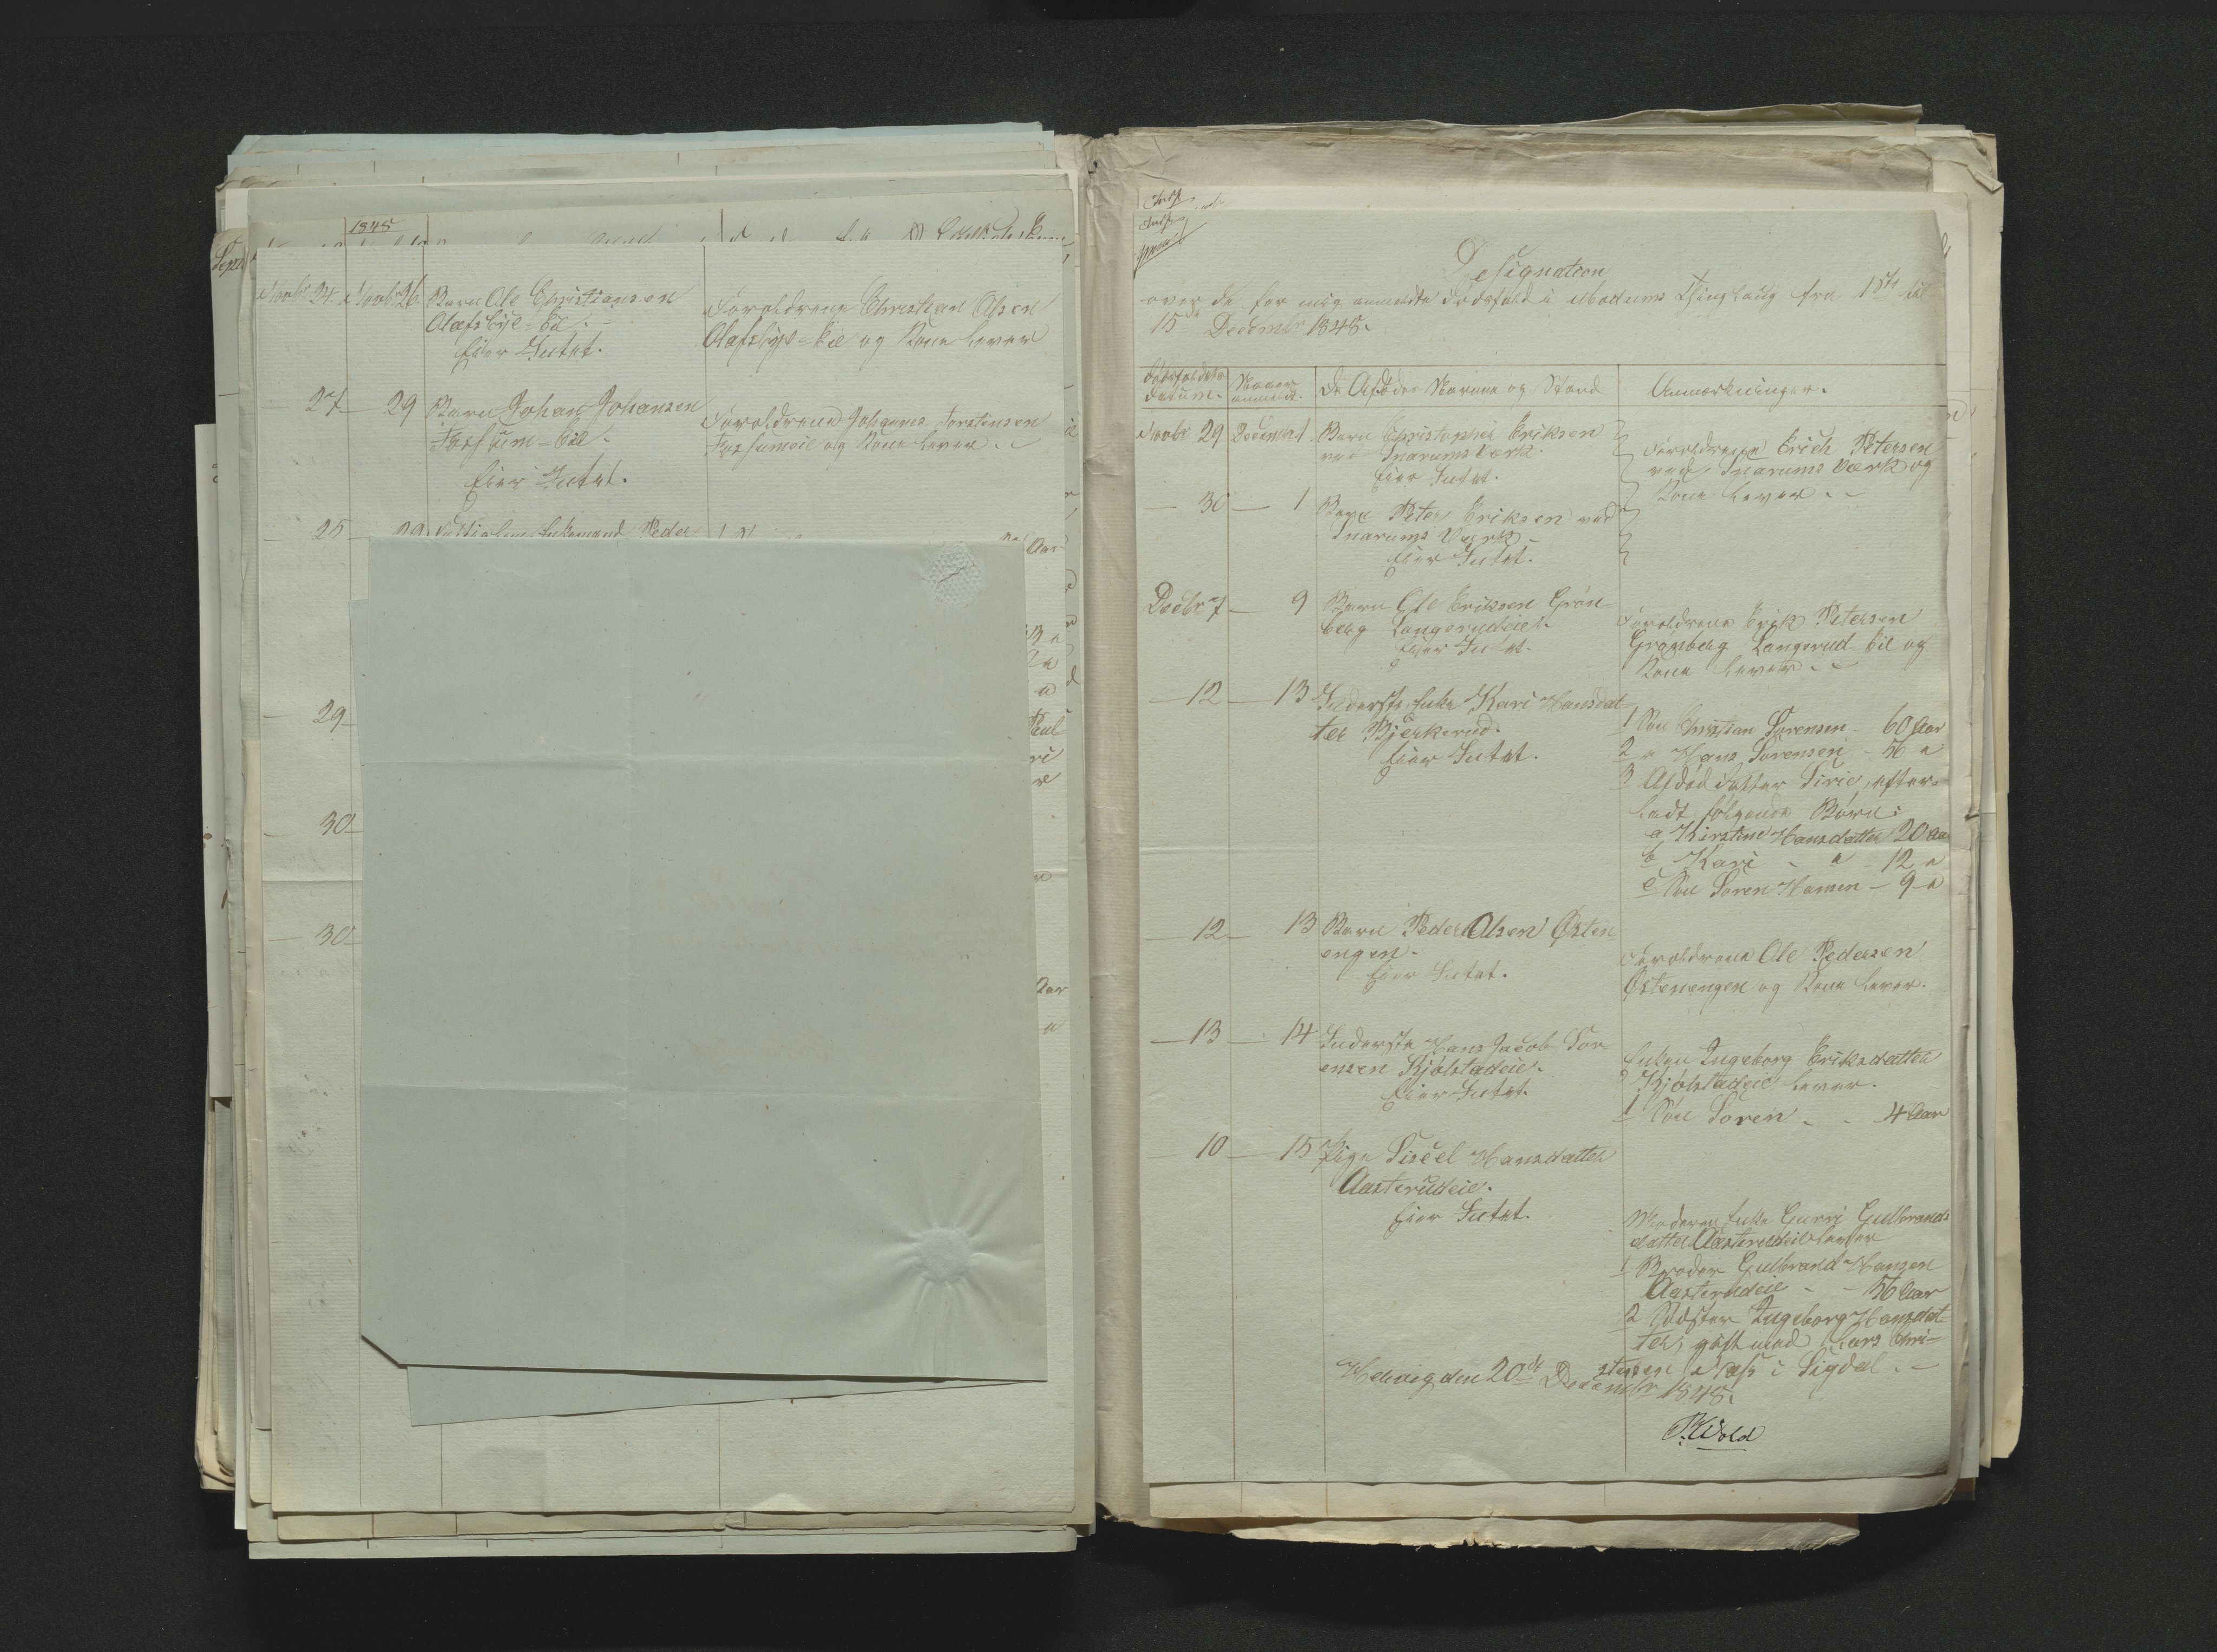 1848
Novbr 24 Novbr 26 Barn Ole Christiansen
Olafsbye-Eie.
Eier Intet.
Forældrene Christian Olsen
Olafsbye-Eie og Kone lever
27 29 Barn Johan Johansen
Fossum-Eie.
Eier Intet.
Forældrene Johannes Torstensen
Fossumeie og Kone lever
25 29 Peder
Aar
29
30
30
Aar
Designation
over de for mig anmeldte Dødsfald i Modums Thinglaug fra 1ste til
15de Decembr 1848.
Dødsfaldets Datum. Naar anmeldt. De Afdødes Navne og Stand Anmærkninger.
Novbr 29 Decembr 1 Barn Christopher Eriksen
ved Snarums Værk.
Eier Intet.
Forældrene Erich Petersen
ved Snarums Værk og
Kone lever
30 1 Barn Peter Eriksen ved
Snarums Værk
Eier Intet.
Decbr 7 9 Barn Ole Eriksen Grøn-
berg Langerudeie.
Eier Intet.
Forældrene Erik Petersen
Grønberg Langerud-Eie og
Kone lever
12 13 Inderste Enke Kari Hansdat-
ter Bjerkerud.
Eier Intet.
1 Søn Christian Sørensen - 60 Aar
2 " Hans Sørensen - 56 "
3 Afdød Datter Sirie, efter-
ladt følgende Børn:
a Kirstine Hansdatter 20 Aar
b Kari - " - 12 "
c Søn Søren Hansen - 9 "
12 13 Barn Peder Olsen Østen-
engen.
Eier Intet.
Forældrene Ole Pedersen
Østenengen og Kone lever.
13 14 Inderste Hans Jacob Sør-
ensen Kjølstadeie.
Eier Intet.
Enken Ingeborg Eriksdatter
Kjølstadeie lever.
1 Søn Søren - - 4 Aar
10 15 Pige Sissel Hansdatter
Aasterudeie.
Eier Intet.
Moderen Enke Gurri Gulbrands-
datter Aasterudeie lever
1 Broder Gulbrand Hansen
Aasterudeie - - 56 Aar
2 Søster Ingeborg Hansdat-
ter, gift med Lars Chri-
stensen i Sigdal
den 20de Decembr 1848.
Wold